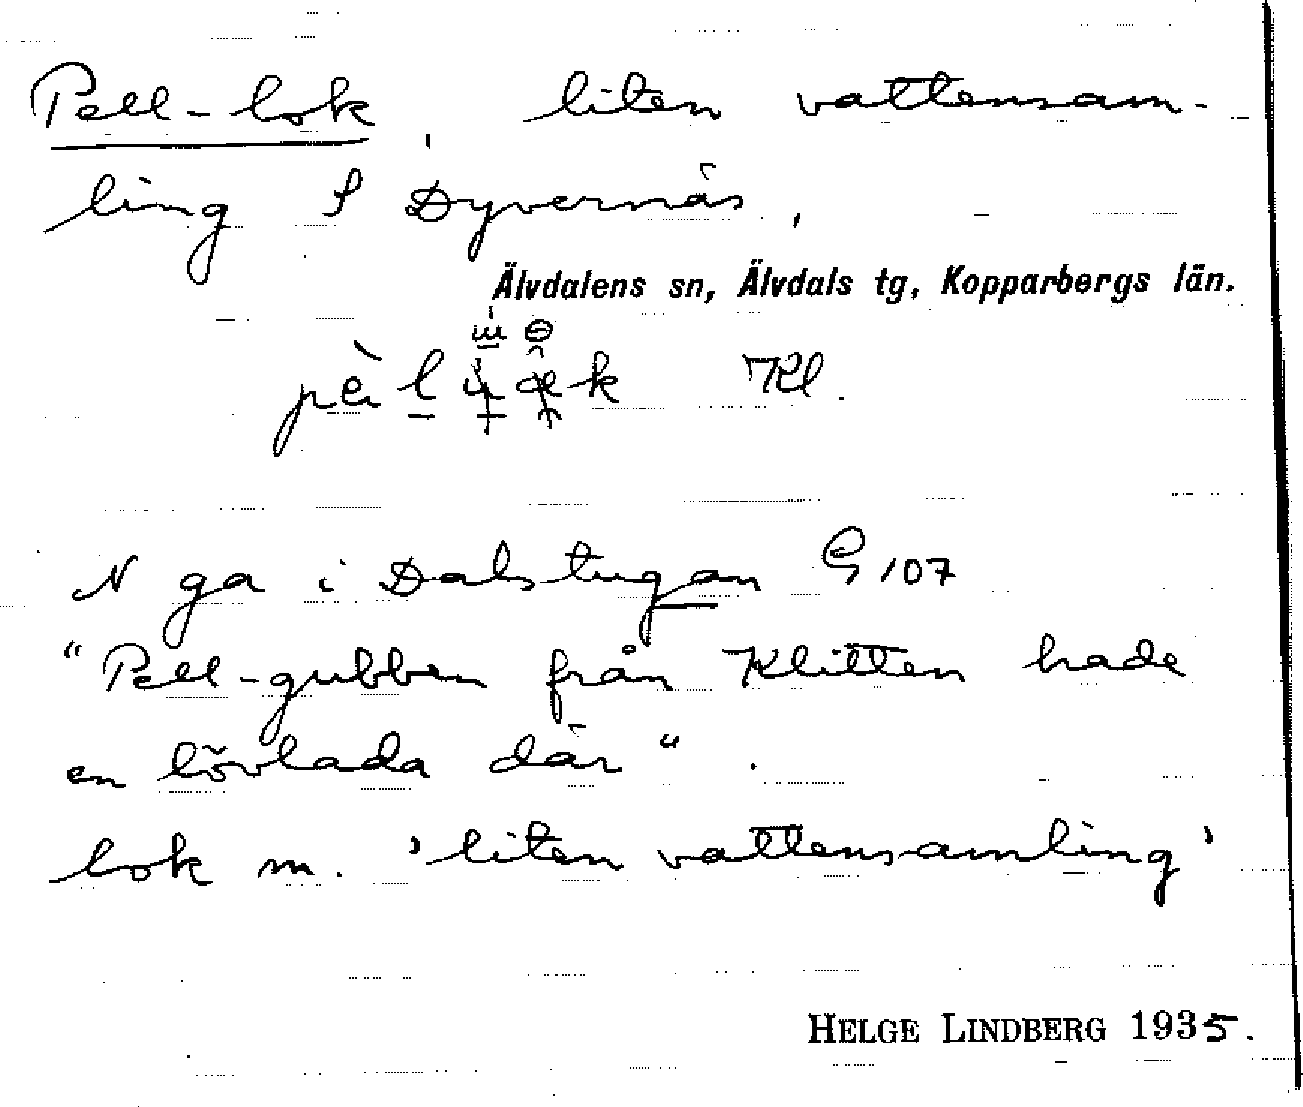 Pell-lok, liten vattensam-
ling S Dyvernäs,
Älvdalens sn, Älvdals tg, Kopparbergs län.
Kl.
N ga i Dalstugan G 107
"Pell-gubben från Klitten hade
en lövlada där".
lok m. 'liten vattensamling'
HELGE LINDBERG 1935.